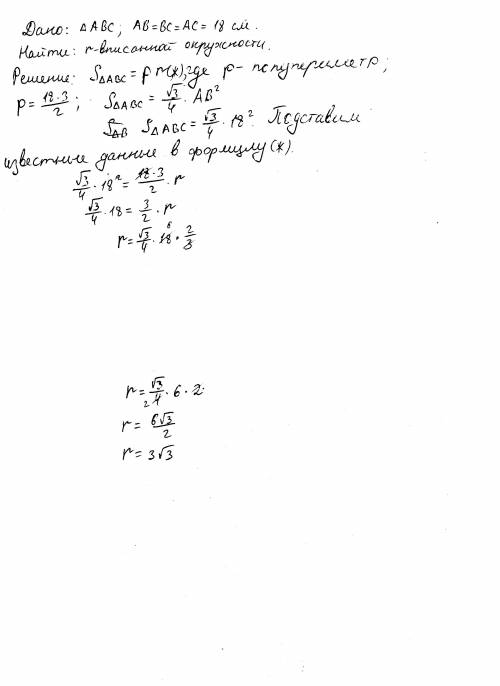 Дано: △ABC; AB=BC=AC= 18 см.
Найти: r-вписанной окружности.
Решение: S△ABC = p·r(*), где p- полупериметр;
p= 18·3/2 ; S△ABC = √3/4 · AB²
S△AB S△ABC = √3/4 · 18². Подставим
известные данные в формулу(*).
√3/4 · 18² = 18·3/2 · r
√3/4 · 18 = 3/2 · r
r= √3/4 · 18 6 · 2/3
r= √3/4 2 · 6 · 2
r= 6√3/2
r= 3√3